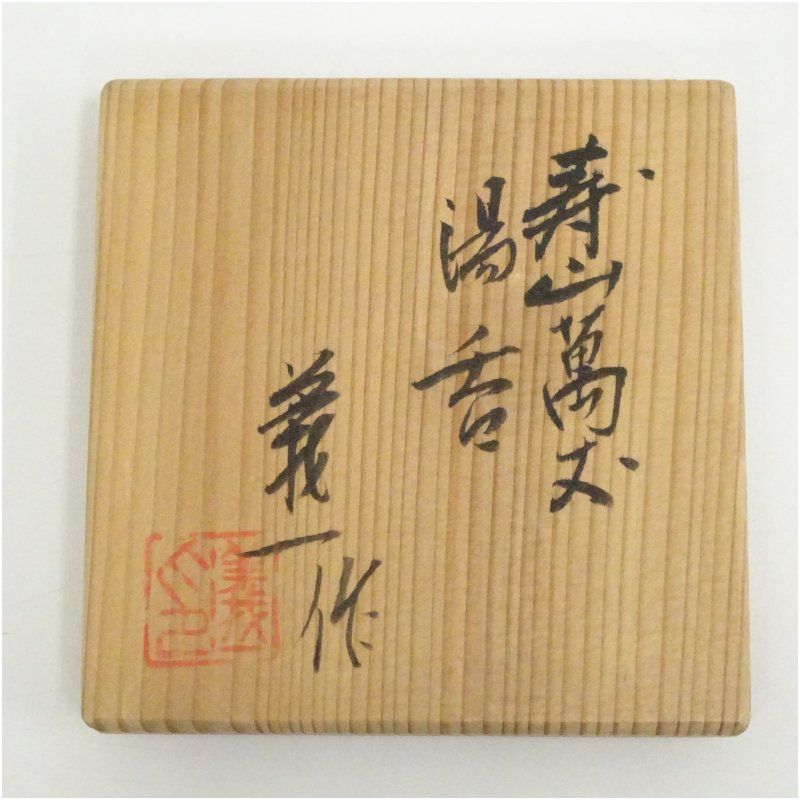 寿山萬丈
湯呑
義一作